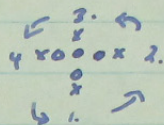 3.
x
4 x o o o x 2.
o
x
1.